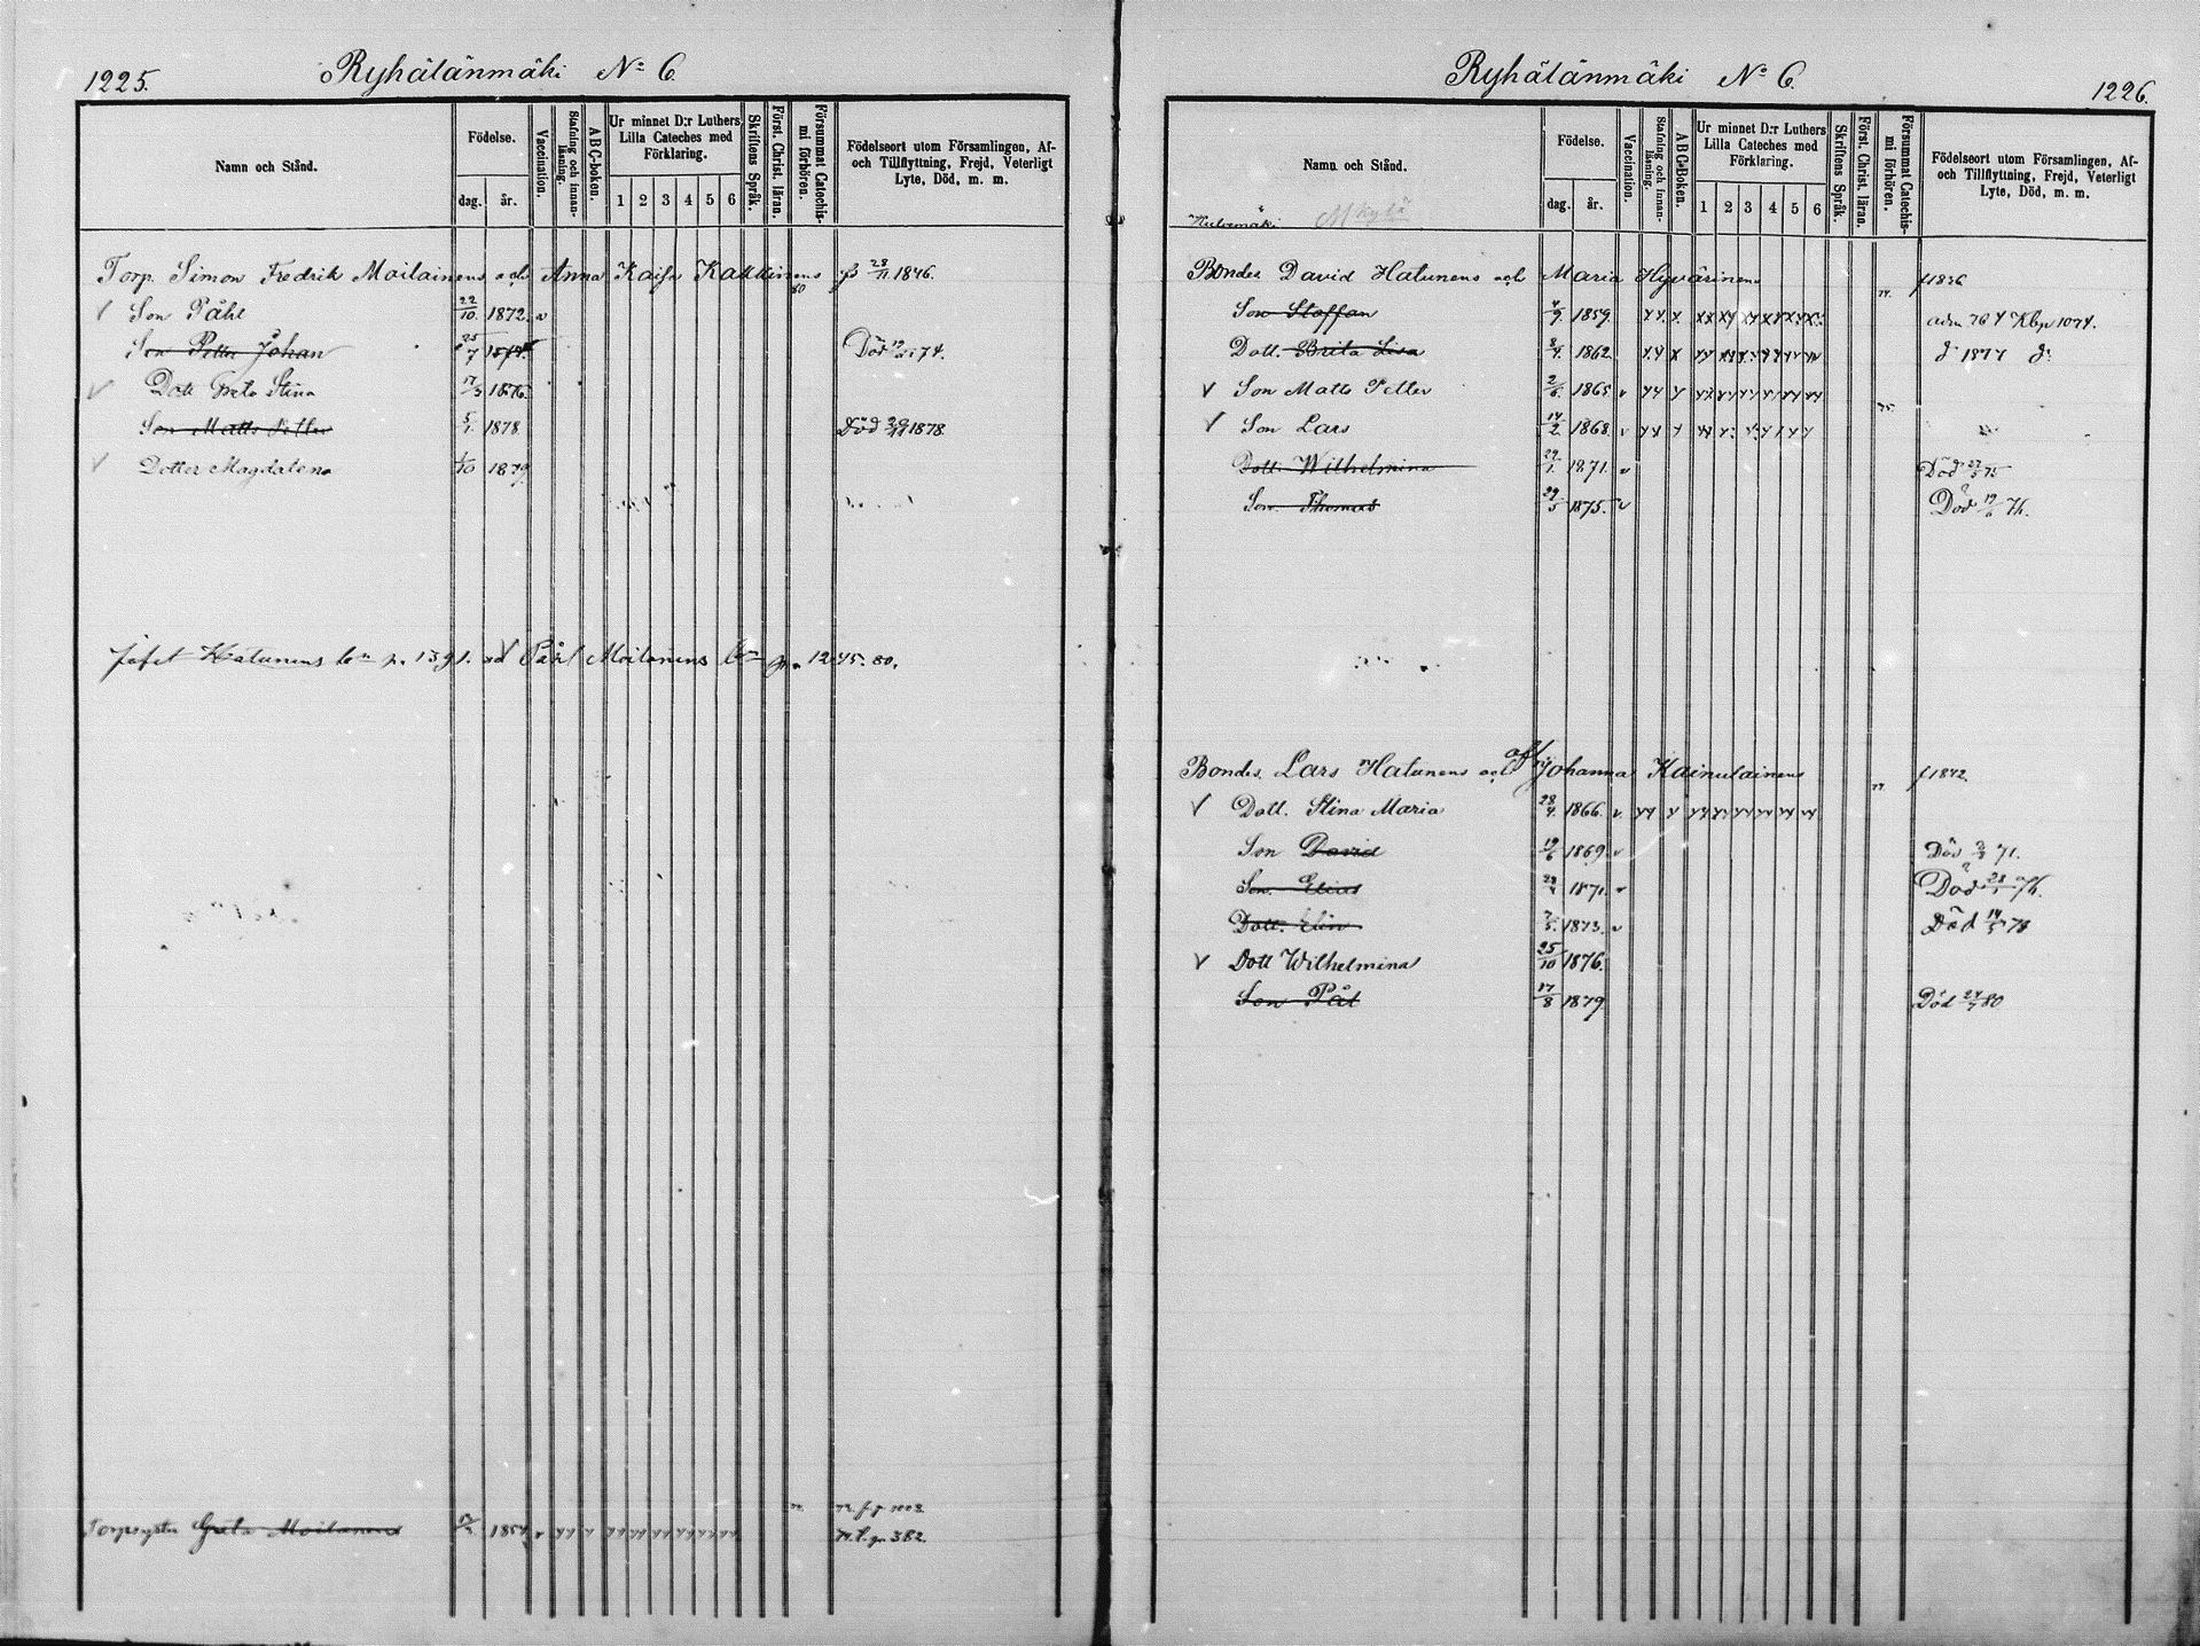 1225.
Ryhälänmäki No 6.
Namn och Stånd.
Födelse.
dag. år.
Vaccination.
Stafning och innanläsning.
ABC-boken.
Ur minnet D:r Luthers Lilla Cateches med Förklaring.
1 2 3 4 5 6
Skriftens Språk.
Först. Christ. läran.
Försummat Catechismi förhören.
Födelseort utom Församlingen, Af- och Tillflyttning, Frejd, Veterligt Lyte, Död, m. m.
Torp. Simon Fredrik Moilainens och Anna Kaisa Kakkinens 80 28/11 1846.
Son Påhl 22/10 1872. v
Son Petter Johan 25/7 1874 Död 74.
Dott Greta Stina 17/3 1876
Son Matts Petter 5/1 1878 Död 1878.
Dotter Magdalena 1/10 1879
Hatunens p. 1391. Påhl Moilanens p. 1245. 80.
72. 
Greta Moilanens 1854 v yy y yy yy yy yy yy yy 382.
Ryhälänmäki No 6.
1226.
Namn och Stånd.
Födelse.
dag. år.
Vaccination.
Stafning och innanläsning.
ABC-Boken.
Ur minnet D:r Luthers Lilla Cateches med Förklaring.
1 2 3 4 5 6
Skriftens Språk.
Först. Christ. läran.
Försummat Catechismi förhören.
Födelseort utom Församlingen, Af- och Tillflyttning, Frejd, Veterligt Lyte, Död, m. m.
Bondes David Hatunens och Maria Hyvärinens f 1836
Son Staffan 4/9 1859. adm 76 Kbp 1074.
Dott. Brita Lisa 8/4 1862 1877
Son Matts Petter 2/6 1865 v
Son Lars 14/2 1868. v
Dott. Wilhelmina 29/1 1871. v Död 75
Son Thomas 29/5 1875. v Död 19/6 76.
Bondes Lars Hatunens och Johanna Kainulainens 77 f 1842.
Dott. Stina Maria 28/4 1866. v yy y yy yy yy yy yy yy
Son David 19/6 1869 v Död 71.
Son Elias 1871. v Död 28/1 76.
Dott. Elin 7/5 1873. v Död 14/5 78
Dott Wilhelmina 25/10 1876.
Son Pål 17/8 1879 Död 24/7 80